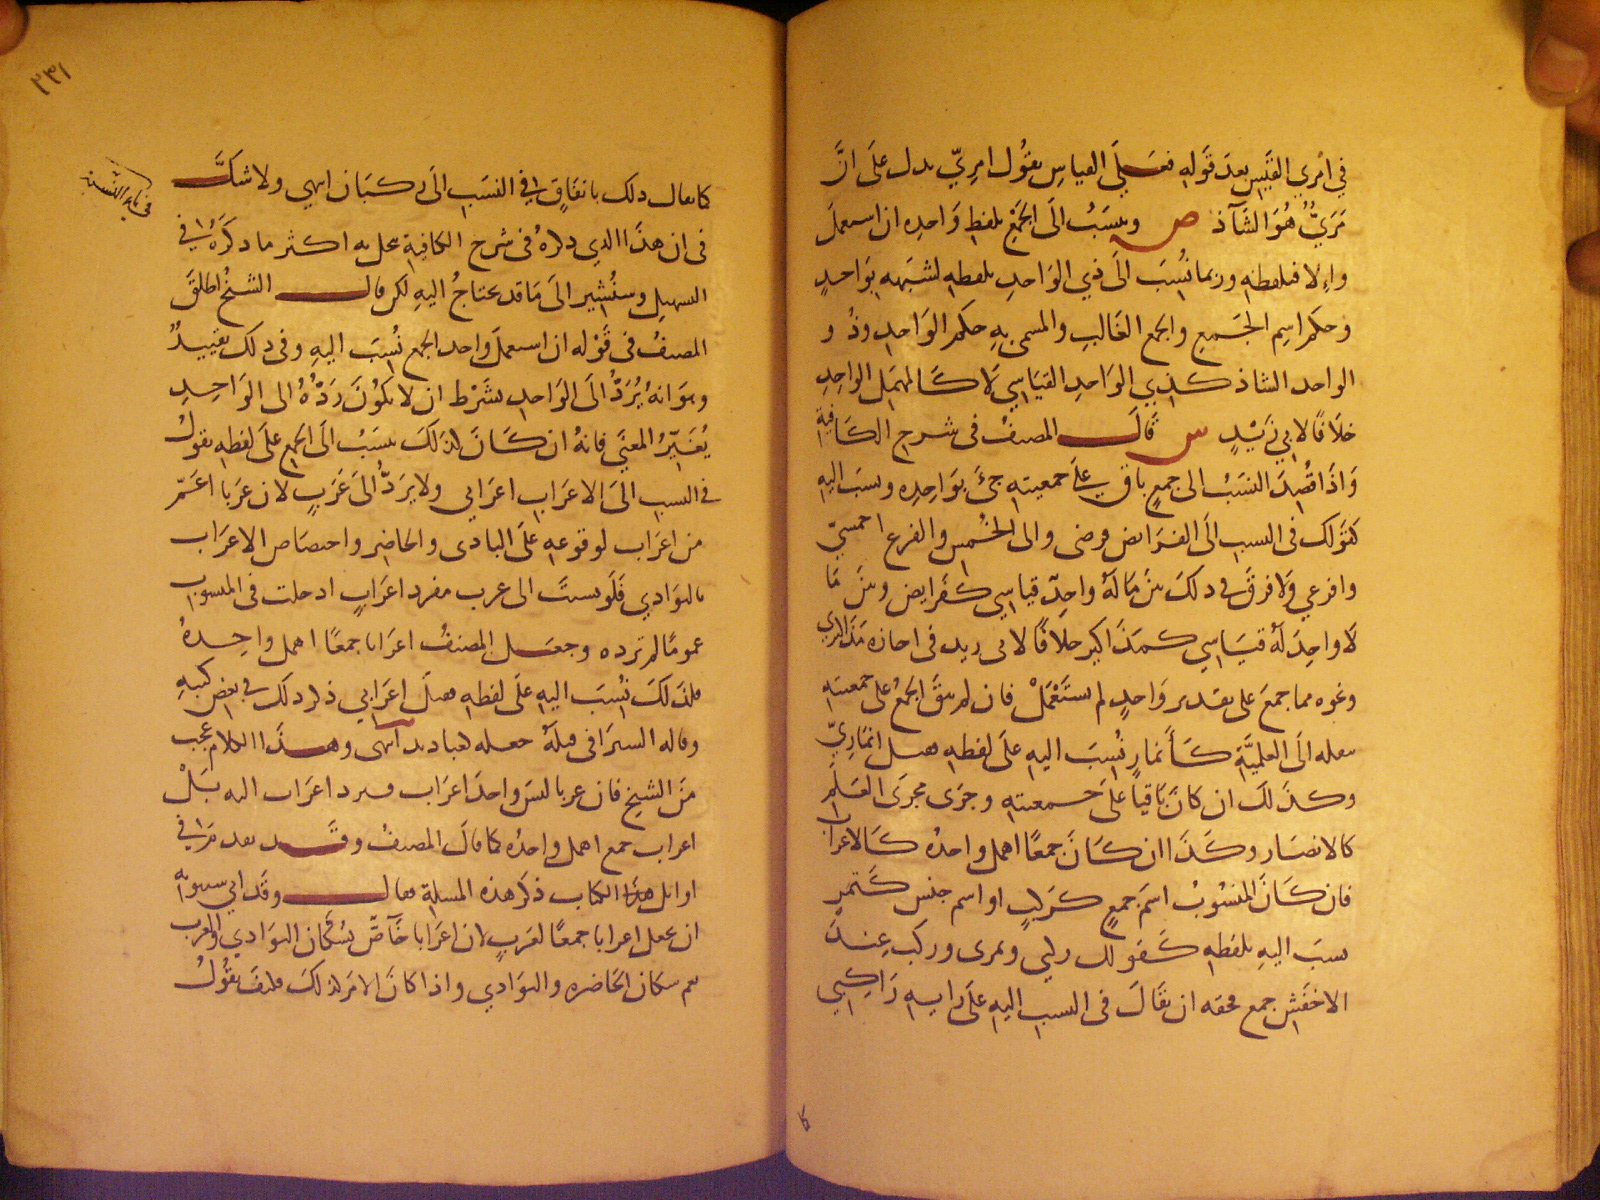 في امرئ القيس بعد قوله فعلى القياس يقول امرئيّ يدل على انّ
مَرَئيٌّ هو الشاذ ص وينسب الى الجمع بلفظ واحده ان استعمل
وإلا فبلفظه وربما نُسب الى ذي الواحد بلفظه لشبهه بواحدٍ
وحكم اسم الجمع والجمع الغالب والمسمى به حكم الواحد وذو
الواحد الشاذ كذي الواحد القياسي لا كالمهمل الواحد
خلافًا لابي زيدٍ س قال المصنف في شرح الكافية
وإذا قُصد النسب الى جمعٍ باقٍ على جمعيته جئ بواحده ونسب اليه
كقولك في النسب الى الفرائض فرضي والى الحُمس والفرع احمسيّ
وافرعي ولا فرق في ذلك بين ما له واحد قياسي كفرايض وبين ما
لا واحد له قياسي كمذاكير خلافًا لابي زيد في اجازه مذاكيري
ونحوه مما جمع على تقدير واحدٍ لم يستعمل فان لم يبق الجمع على جمعيته
بنقله الى العلميَّة كأنمار نُسب اليه على لفظه فقيل انماريّ
وكذلك ان كان باقيا على جمعيته وجرى مجرى العلم
كالانصار وكذا ان كان جمعًا اهمل واحده كالاعراب
فان كان المنسوب اسم جمعٍ كركبٍ او اسم جنس كتمر
نسب اليه بلفظه كقولك ركبي وتمري وركب عند
الاخفش جمع فحقه ان يقال في النسب اليه على رايه راكبي
كا
٢٣١
في باب النسب
كما يقال ذلك باتفاق في النسب الى ركبان انتهى ولا شك
في ان هذا الذي ذكره في شرح الكافية يحل به اكثر ما ذكره في
التسهيل وسنُشير الى ما قد يحتاج اليه لكن قال الشيخ اطلق
المصنف في قوله ان استعمل واحد الجمع نُسب اليه وفي ذلك تقييدٌ
وهو انه يُردُّ الى الواحد بشرط ان لا يكون ردُّه الى الواحد
يُغيّر المعنى فانه ان كان لذلك ينسب الى الجمع على لفظه تقول
في النسب الى الاعراب اعرابي ولا يردُّ الى عربٍ لان عربا اعمّ
من اعراب لوقوعه على البادي والحاضر واختصاص الاعراب
بالبوادي فلو نسبت الى عرب مفرد اعرابٍ ادخلت في المنسوب
عمومًا لم ترده وجعل المصنف اعرابا جمعًا اهمل واحده
فلذلك نُسب اليه على لفظه فقيل اعرابي ذكر ذلك في بعض كتبه
وقاله السيرافي قبله جعله انتهى وهذا الكلام عجب
من الشيخ فان عربا ليس واحد اعراب فيرد اعراب اليه بل
اعراب جمع اهمل واحده كما قال المصنف وقد بعد مرّ في
اوائل هذا الكتاب ذكر هذه المسلة فقال وقد ابى سيبويه
ان يجعل اعرابا جمعًا لعربٍ لان اعرابا خاصٌّ بسُكّان البوادي والعرب
يعم سكان الحاضره والبوادي واذا كان الامر لذلك فكيف يقول